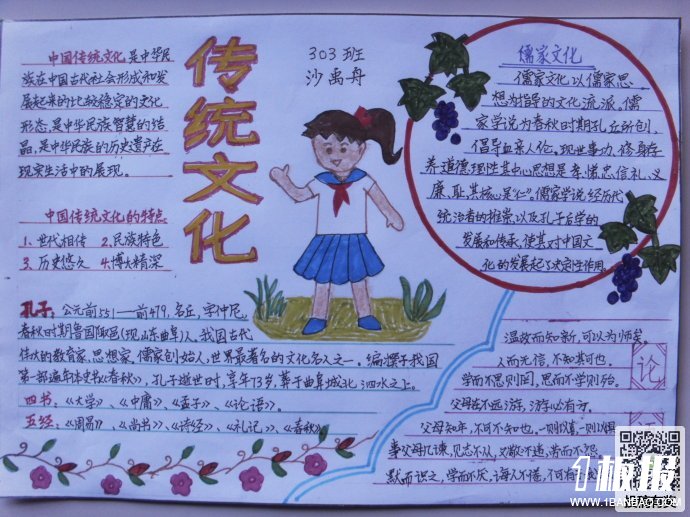 中国传统文化是中华民
族在中国古代社会形成和发
展起来的比较稳定的文化
形态,是中华民族智慧的结
晶,是中华民族的历史遗产在
现实生活中的展现。
中国传统文化的特点
1、世代相传 2、民族特色
3、历史悠久 4、博大精深
传统文化
303班
沙禹舟
儒家文化
儒家文化以儒家思
想为指导的文化流派。儒
家学说为春秋时期孔丘所创,
倡导血亲人伦、现世事功、修身存
养、道德理性其中心思想是孝、悌、忠、信、礼、义
廉、耻,其核心是“仁”。儒家学说经历代
统治者的推崇,以及孔子后学的
发展和传承,使其对中国文
化的发展起了决定性作用。
孔子:公元前551—前479,名丘,字仲尼。
春秋时期鲁国陬邑(现山东曲阜)人。我国古代
伟大的教育家、思想家、儒家创始人,世界最著名的文化名人之一。编撰了我国
第一部编年本史书《春秋》,孔子逝世时,享年73岁,葬于曲阜城北泗水之上。
四书:《大学》、《中庸》、《孟子》、《论语》。
五经:《周易》、《尚书》、《诗经》、《礼记》、《春秋》
温故而知新,可以为师矣。
人而无信,不知其可也。
学而不思则罔,思而不学则殆。
父母在不远游,游必有方。
父母知年,不可不知也,一则以喜,一则以惧
事父母几谏,见志不从,又敬不违,劳而不怨。
默而识之,学而不厌,诲人不倦,不可有
论
语
1板报
WWW.1BANBAO.COM